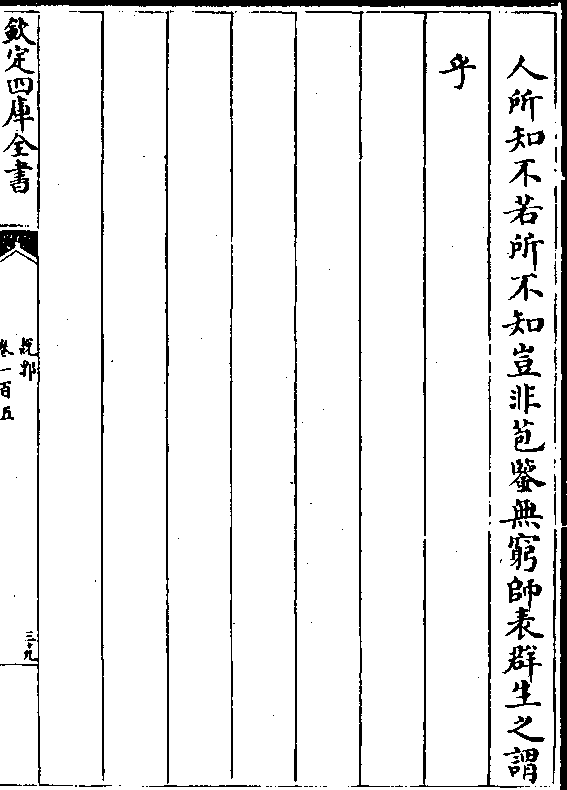 人所知不若所不知豈非苞鑒無窮師表群生之謂
乎
欽定四庫全書
說郛
卷一百五
三十九